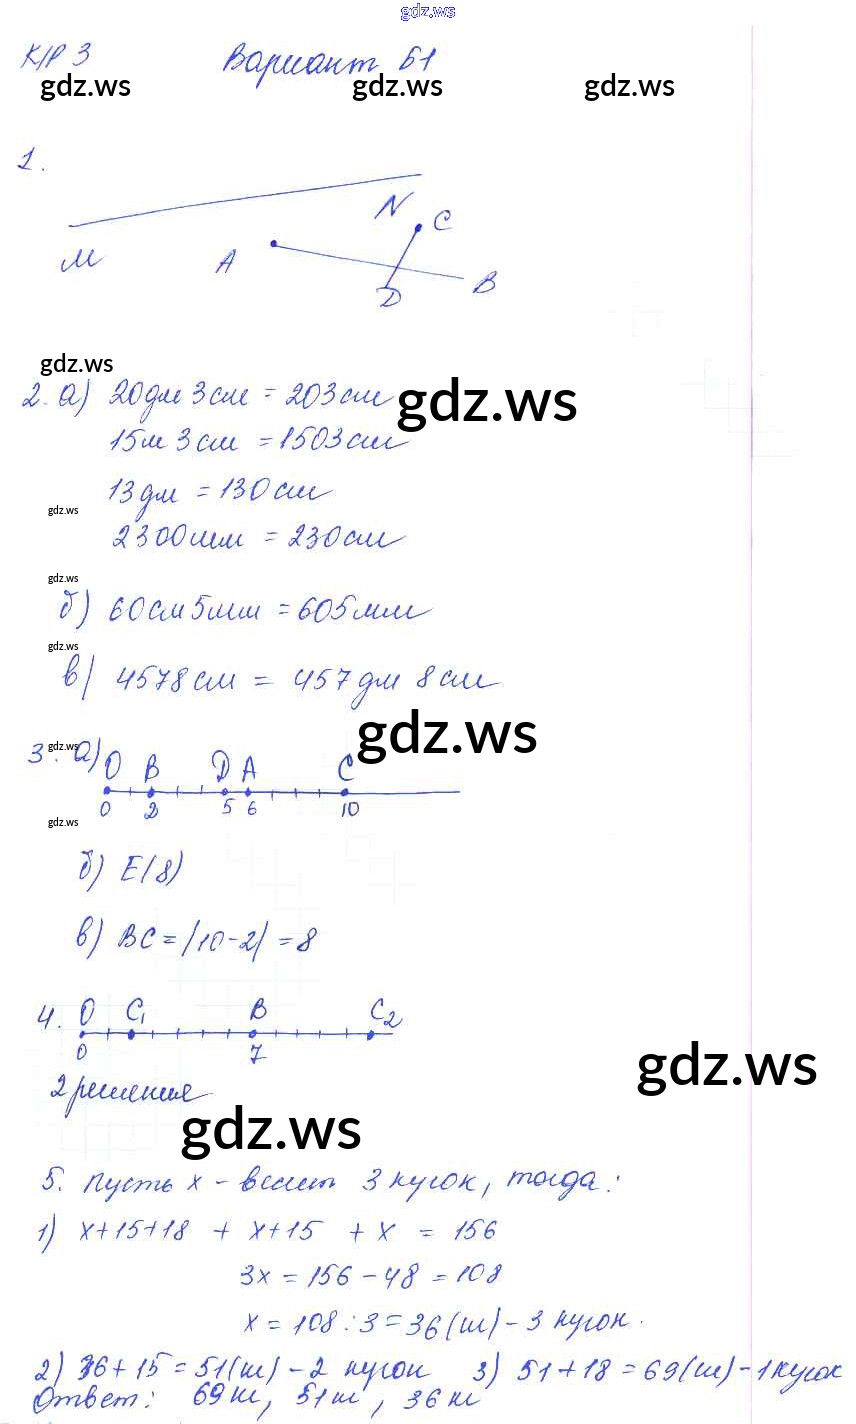 gdz.ws
К/Р 3 Вариант Б1
gdz.ws gdz.ws gdz.ws
1.
N C
M A B
D
gdz.ws
2. а) 20дм 3см = 203см gdz.ws
15м 3см = 1503см
13дм = 130см
gdz.ws
2300мм = 230см
gdz.ws
б) 60см 5мм = 605мм
gdz.ws
в) 4578см = 457дм 8см
gdz.ws
3. а) gdz.ws
O B D A C
0 2 5 6 10
gdz.ws
б) E(8)
в) BC = |10-2| = 8
4. O C₁ B C₂
0 7
gdz.ws
2 решения
gdz.ws
5. Пусть x - весит 3 кусок, тогда:
1) x+15+18 + x+15 + x = 156
3x = 156 - 48 = 108
x = 108 : 3 = 36(м) - 3 кусок.
2) 36 + 15 = 51(м) - 2 кусок 3) 51 + 18 = 69(м) - 1 кусок
Ответ: 69м, 51м, 36м